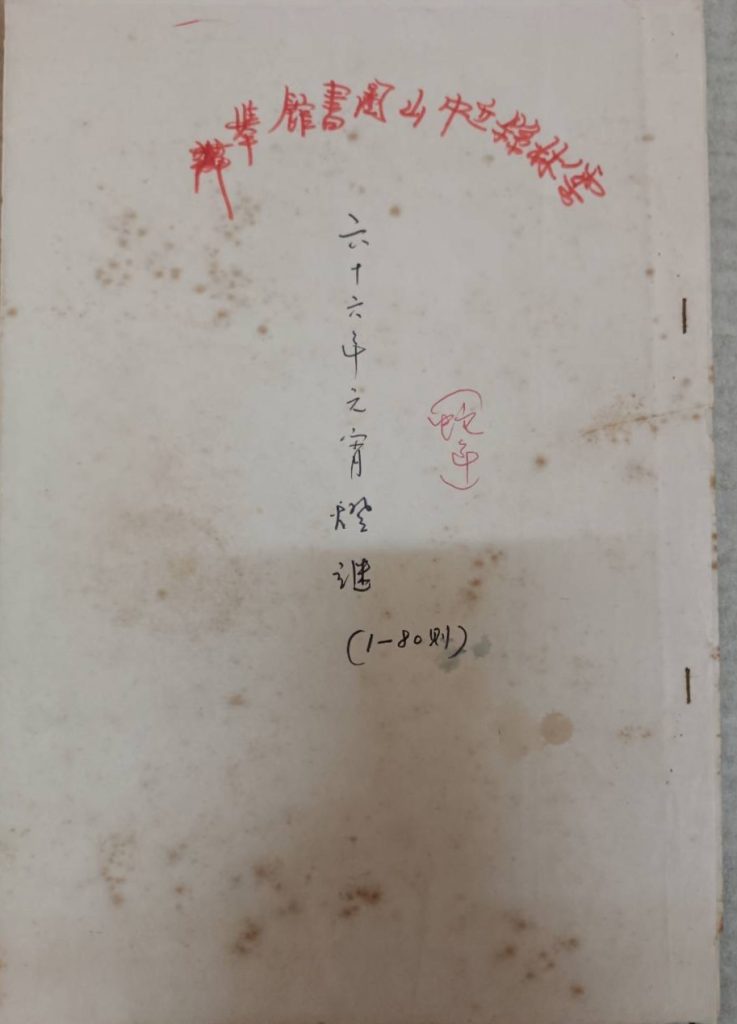 雲林縣立中山圖書館舉辦
六十六年元宵燈謎
(1-80則)
(蛇年)